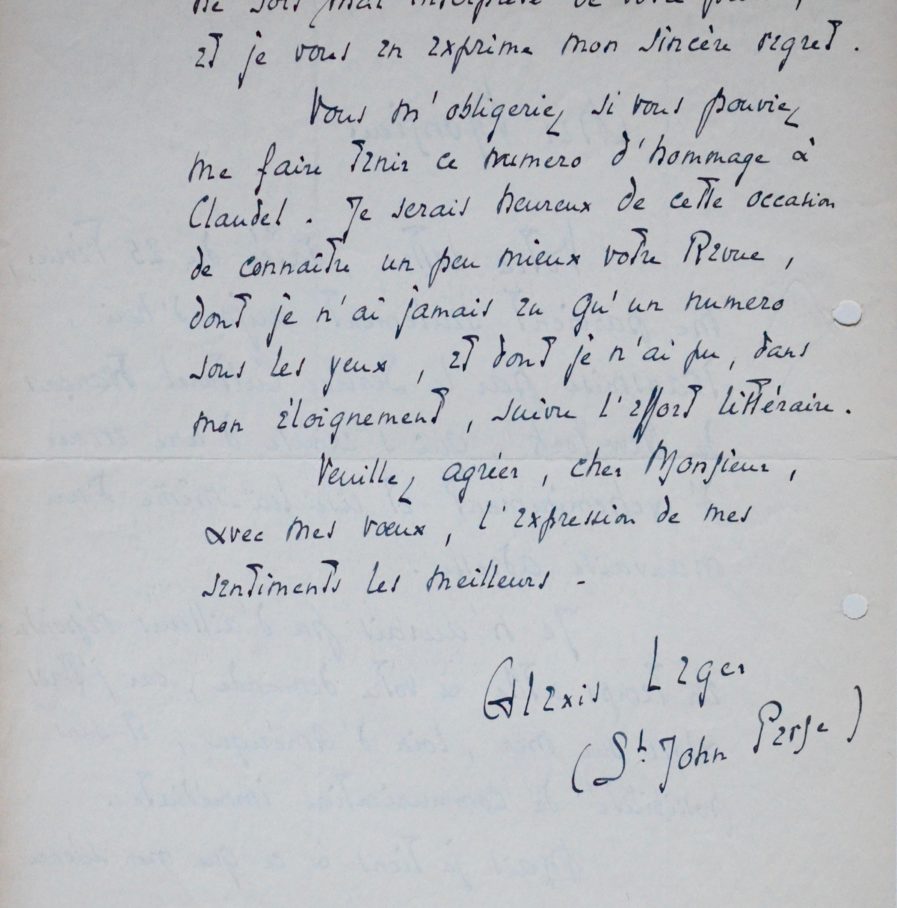 ne soit mal interprété de votre
et je vous en exprime mon sincère regret.
Vous m'obligeriez si vous pouviez
me faire tenir ce numero d'hommage à
Claudel. Je serais heureux de cette occasion
de connaître un peu mieux votre Revue,
dont je n'ai jamais eu qu'un numero
sous les yeux, et dont je n'ai pu, dans
mon éloignement, suivre l'effort littéraire.
Veuillez agréer, cher Monsieur,
avec mes vœux, l'expression de mes
sentiments les meilleurs -
Alexis Leger
(St. John Perse)